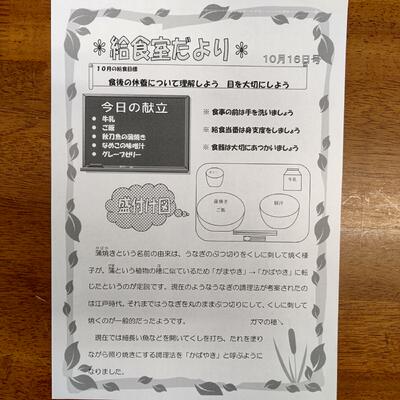 ＊給食室だより＊
10月16日号
10月の給食目標
食後の休養について理解しよう　目を大切にしよう
今日の献立
● 牛乳
● ご飯
● 秋刀魚の蒲焼き
● なめこの味噌汁
● グレープゼリー
※ 食事の前は手を洗いましょう
※ 給食当番は身支度をしましょう
※ 食器は大切にあつかいましょう
盛付け図
牛乳
蒲焼き
ご飯
味汁
蒲焼きという名前の由来は、うなぎのぶつ切りをくしに刺して焼く様
子が、蒲という植物の穂に似ているため「がまやき」→「かばやき」に転
じたというのが定説です。現在のようなうなぎの調理法が考案されたの
は江戸時代。それまではうなぎを丸のままぶつ切りにして、くしに刺して
焼くのが一般的だったようです。
ガマの穂
現在では細長い魚などを開いてくしを打ち、たれを塗り
ながら照り焼きにする調理法を「かばやき」と呼ぶように
なりました。